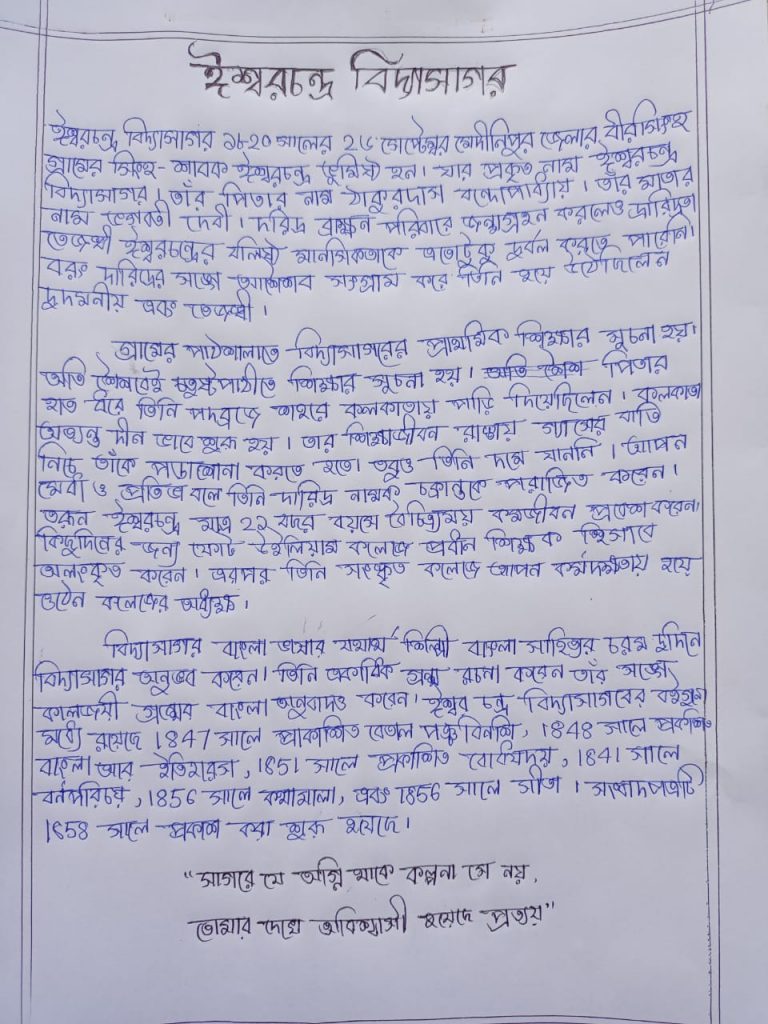 ঈশ্বরচন্দ্র বিদ্যাসাগর
ঈশ্বরচন্দ্র বিদ্যাসাগর ১৮২০ সালের ২৬ সেপ্টেম্বর মেদীনিপুর জেলার বীরসিংহ
গ্রামের সিংহ-শাবক ঈশ্বরচন্দ্র ভুমিষ্ট হন। যার প্রকৃত নাম ঈশ্বরচন্দ্র
বিদ্যাসাগর। তাঁর পিতার নাম ঠাকুরদাস বন্দোপাধ্যায়। তাঁর মাতার
নাম ভগবতী দেবী। দরিদ্র ব্রাহ্মন পরিবারে জন্মগ্রহন করলেও দ্রারিদ্রতা
তেজস্বী ঈশ্বরচন্দ্রের বলিষ্ট মানসিকতাকে এতোটুকু দুর্বল করতে পারেনি।
বরং দারিদ্রের সঙ্গে আশৈশব সংগ্রাম করে তিনি হয়ে উঠেছিলেন
দুদমনীয় এবং তেজস্বী।
গ্রামের পাঠশালাতে বিদ্যাসাগরের প্রাথমিক শিক্ষার সূচনা হয়।
অতি শৈশবেই চতুষ্টপাঠীতে শিক্ষার সূচনা হয়। অতি শৈশ পিতার
হাত ধরে তিনি পদব্রজে শহরে কলকাতায় পাড়ি দিয়েছিলেন। কলকাতা
অত্যন্ত দীন ভাবে শুরু হয়। তার শিক্ষাজীবন রাস্তায় গ্যাসের বাতি
নিচে তাঁকে পড়াশোনা করতে হতো। তবুও তিনি দমে যাননি। আপন
মেধা ও প্রতিভা বলে তিনি দারিদ্র নামক চক্রান্তকে পরাজিত করেন।
তরুন ঈশ্বরচন্দ্র মাত্র ২১ বছর বয়সে বৈচিত্র্যময় কর্মজীবন প্রবেশ করেন।
কিছুদিনের জন্য ফোর্ট উইলিয়াম কলেজে প্রধান শিক্ষক হিসাবে
অলংকৃত করেন। এরপর তিনি সংস্কৃত কলেজে আপন কর্মদক্ষতায় হয়ে
ওঠেন কলেজের অধ্যক্ষ।
বিদ্যাসাগর বাংলা ভাষার যথার্থ শিল্পী বাংলা সাহিত্যর চরম দুর্দিনে
বিদ্যাসাগর অনুভব করেন। তিনি একাধিক গ্রন্থ রচনা করেন তাঁর সঙ্গে
কালজয়ী গ্রন্থের বাংলা অনুবাদও করেন। ঈশ্বর চন্দ্র বিদ্যাসাগরের
মধ্যে রয়েছে 1847 সালে প্রাকাশিত বেতাল পঞ্চবিনশতি, 1848 সালে প্রকাশিত
বাংলা আর ইতিহাস, 1851 সালে প্রকাশিত বোর্ধদয়, 1841 সালে
বর্নপরিচয়, 1856 সালে কথামালা, এবং 1856 সালে সীতা। সংবাদপত্রটি
1858 সালে প্রকাশ করা শুরু হয়েছে।
"সাগরে যে অগ্নি থাকে কল্পনা সে নয়,
তোমার দেখে অবিশ্বাসী হয়েছে প্রত্যয়"